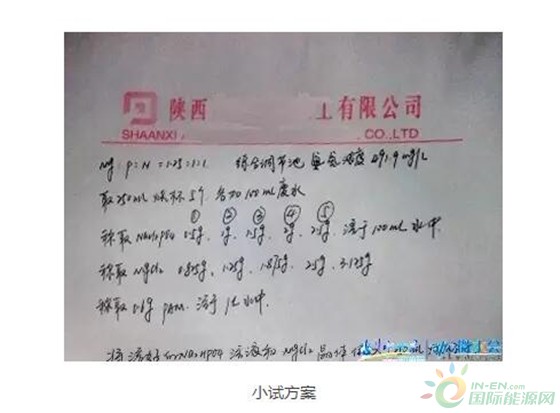 陕西 工有限公司
SHAANXI CO.,LTD
Mg:P:N=1.25:1:1 综合调节池 氨氮浓度 291.9mg/L
取250mL烧杯5个 各加100mL废水
① ② ③ ④ ⑤
称取 0.5g、1g、1.5g、2g、2.5g 溶于100mL水中.
称取MgCl2 1.25g、1.875g、2.5g、3.125g
称取 PAM 溶于1L水中
将 溶液和MgCl2
小试方案
IN-EN.com
国际能源网